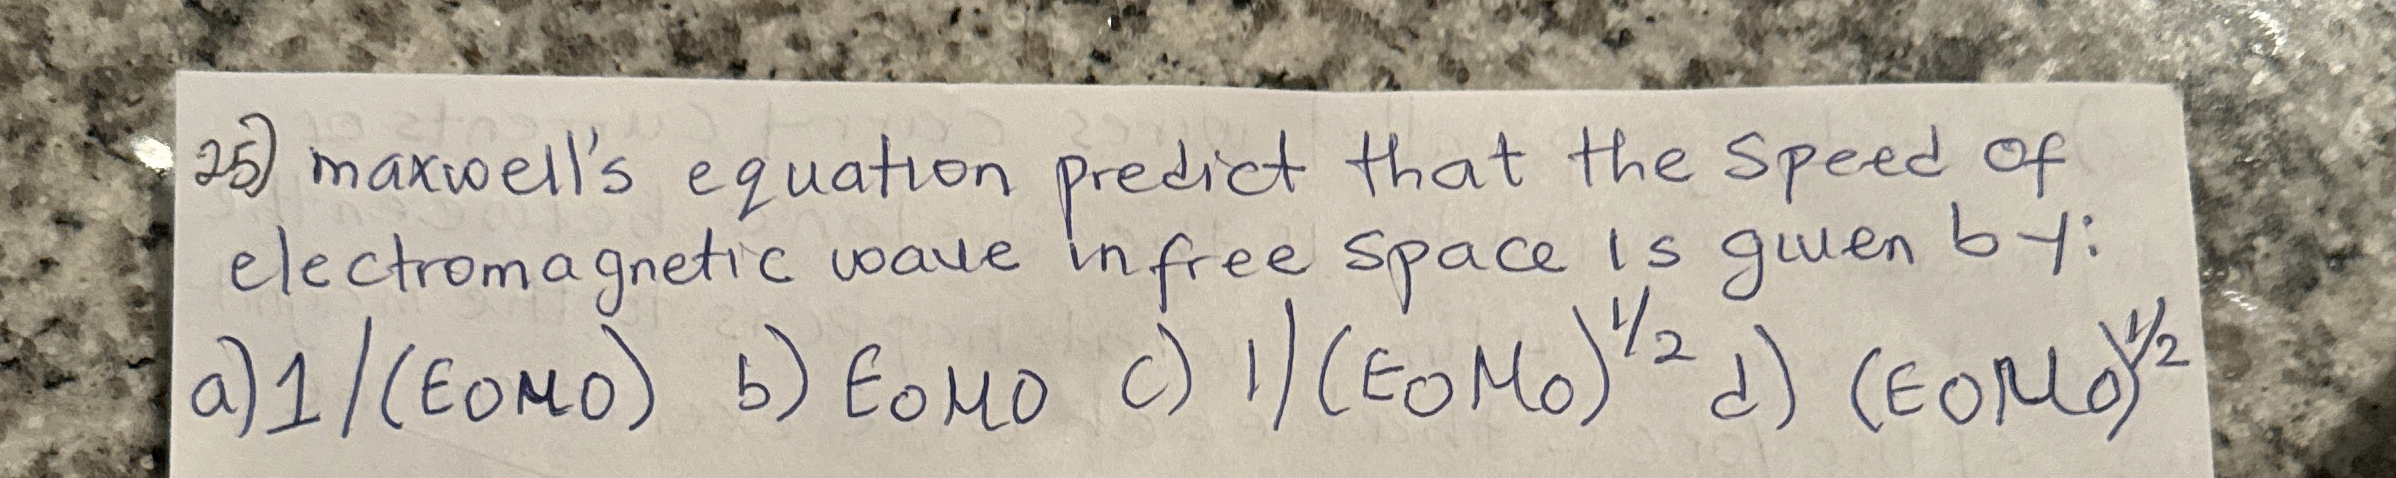 25) maxwell's equation predict that the speed of
electromagnetic wave in free space is given by:
a) 1/(ε0μ0) b) ε0μ0 c) 1/(ε0μ0)^1/2 d) (ε0μ0)^1/2